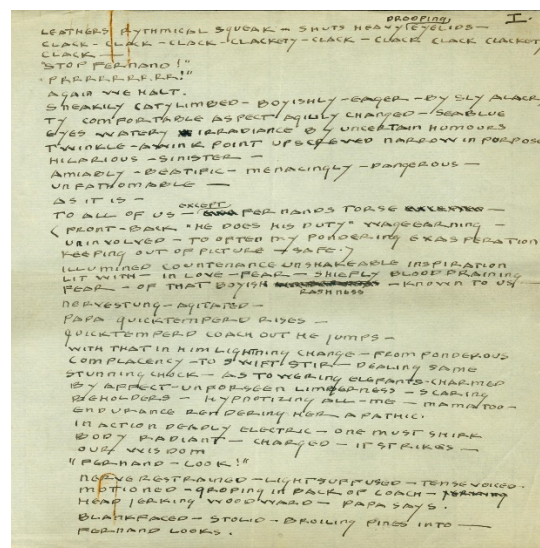 DROOPING I.
LEATHERS RYTHMICAL SQUEAK – SHUTS HEAVY EYELIDS –
CLACK – CLACK – CLACK – CLACKETY – CLACK – CLACK CLACK CLACKETY
CLACK –
"STOP FERNAND!"
"PRRRRRR.RR!"
AGAIN WE HALT.
SNEAKILY CATYLIMBED – BOYISHLY – EAGER – BY SLY ALACRI
TY COMFORTABLE ASPECT AGILLY CHANGED – SEABLUE
EYES WATERY IRRADIANCE BY UNCERTAIN HUMOURS
TWINKLE – AWINK POINT UPSCREVED NARROW IN PORPOSE
HILARIOUS – SINISTER –
AMIABLY – BEATIFIC – MENACINGLY – DANGEROUS –
UNFATHOMABLE –
AS IT IS –
EXCEPT
TO ALL OF US – FERNANDS TORSE
(FRONT – BACK "HE DOES HIS DUTY" WAGEEARNING –
UNINVOLVED – TO OFTEN MY PONDERING EXASPERATION
KEEPING OUT OF PICTURE – SAFE.)
ILLUMINED COUNTENANCE UNSHAKEABLE INSPIRATION
LIT WITH – IN LOVE – FEAR – SHIEFLY BLOOD DRAINING
FEAR – OF THAT BOYISH – KNOWN TO US –
RASHNESS
NERVESTUNG – AGITATED –
PAPA QUICKTEMPERD RISES –
QUICKTEMPERD COACH OUT HE JUMPS –
WITH THAT IN HIM LIGHTNING CHANGE – FROM PONDEROUS
COMPLACENCY – TO SWIFT STIR – DEALING SAME
STUNNING CHOCK – AS TOWERING ELEFANTS – CHARMED
BY AFFECT – UNFORSEEN LIMBERNESS – SCARING
BEHOLDERS – HYPNOTIZING ALL – ME – MAMA TOO –
ENDURANCE RENDERING HER APATHIC.
IN ACTION DEADLY ELECTRIC – ONE MUST SHIRK
BODY RADIANT – CHARGED – IT STRIKES –
OUR WISDOM
"FERNAND – LOOK!"
NERVE RESTRAINED – LIGHT SUFFUSED – TENSE VOICED.
MOTIONED – GROPING IN BACK OF COACH –
HEAD JERKING WOODWARD – PAPA SAYS.
BLANKFACED – STOLID – BROILING PINES INTO –
FERNAND LOOKS.